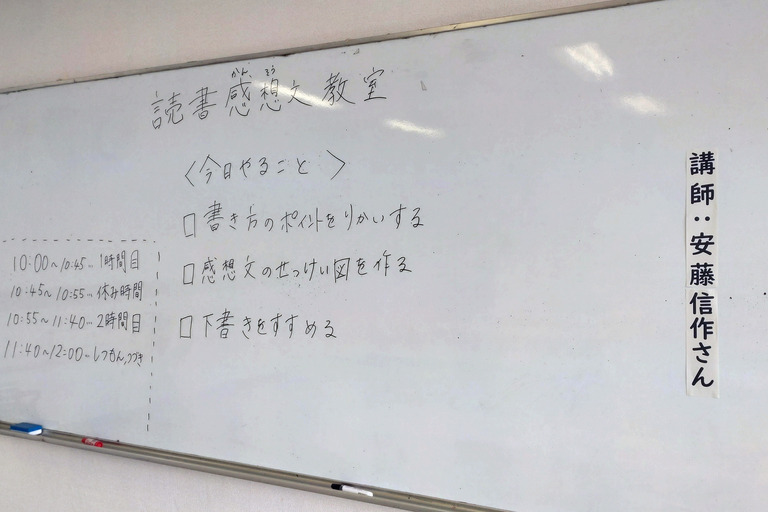 読書感想文教室
かん そう
〈今日やること〉
□書き方のポイントをりかいする
□感想文のせっけい図を作る
□下書きをすすめる
10:00〜10:45…1時間目
10:45〜10:55…休み時間
10:55〜11:40…2時間目
11:40〜12:00…しつもん、つづき
講師:安藤信作さん